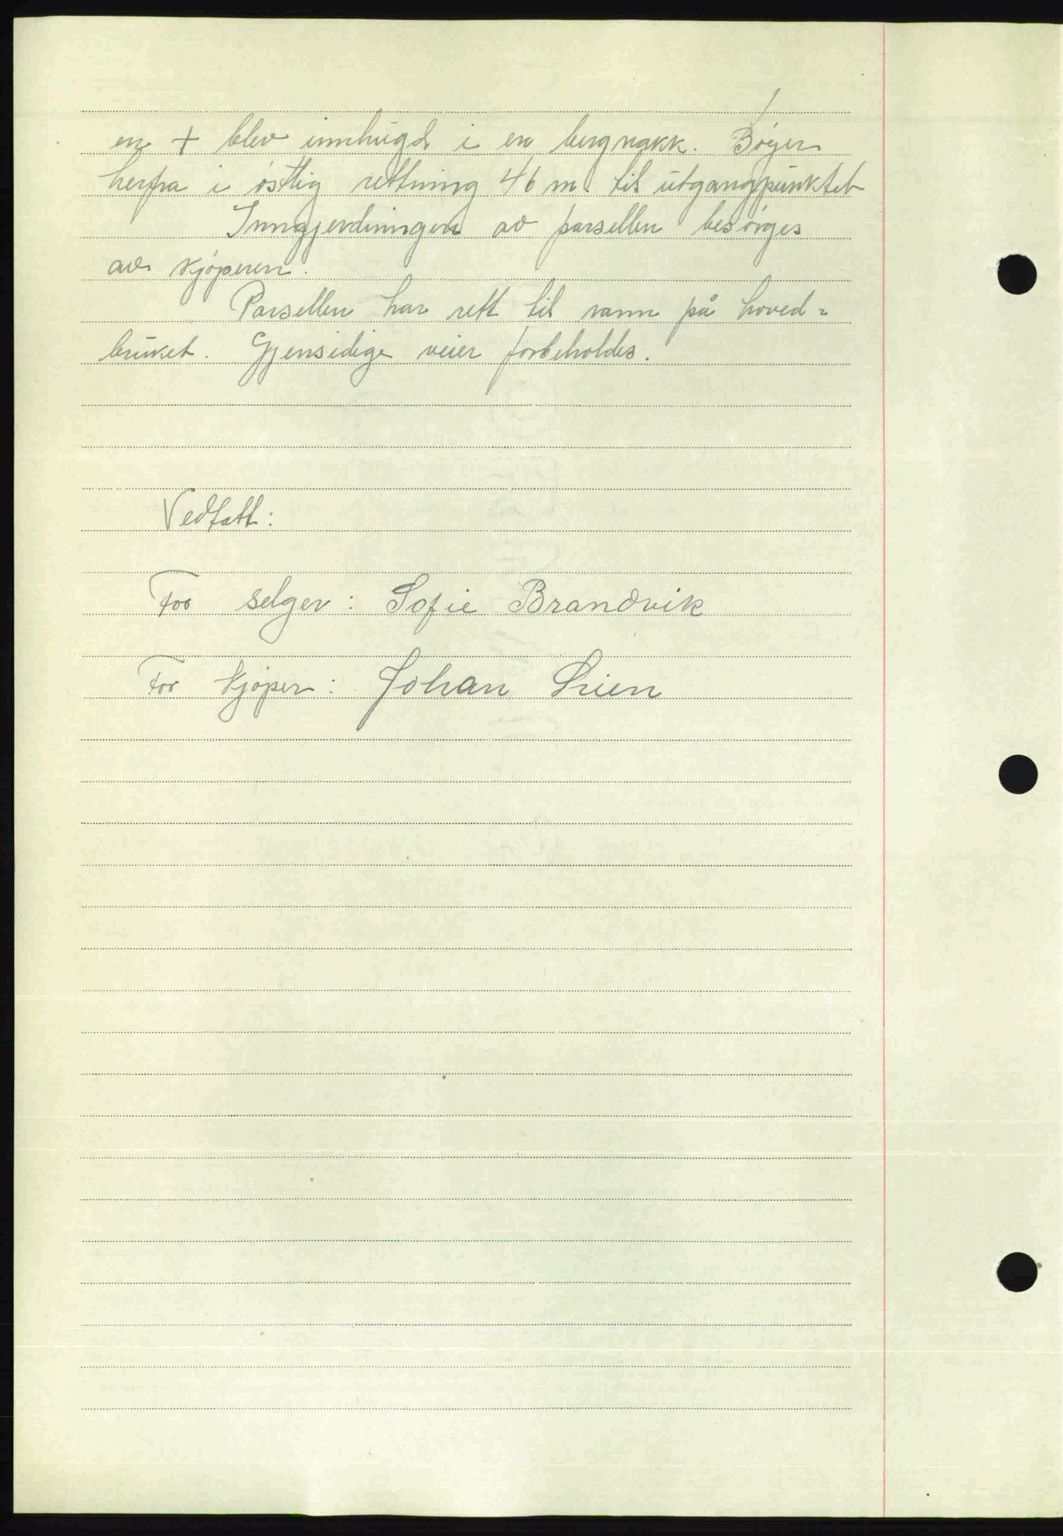 en + blev innhugd i en bergnakk. Bøyer
herfra i østlig rettning 46 m. til utgangpunktet
Inngjerdningen av parsellen besørges
av kjøperen.
Parsellen har rett til vann på hoved-
bruket. Gjensidige veier forbeholdes.
Vedtatt:
For selger: Sofie Brandvik
For kjøper: Johan Lien